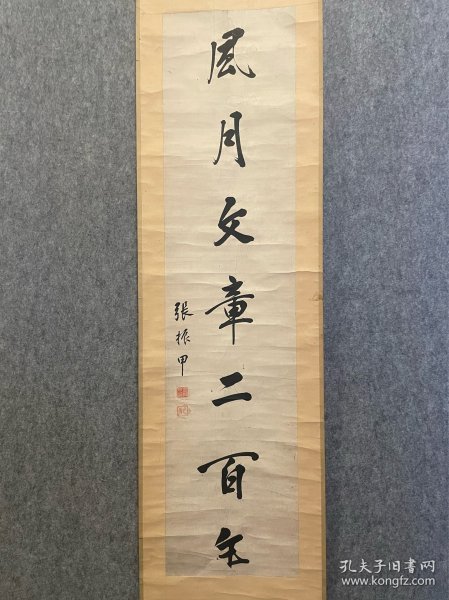 風月文章二百年
張振甲
孔夫子旧书网
www.kongfz.com